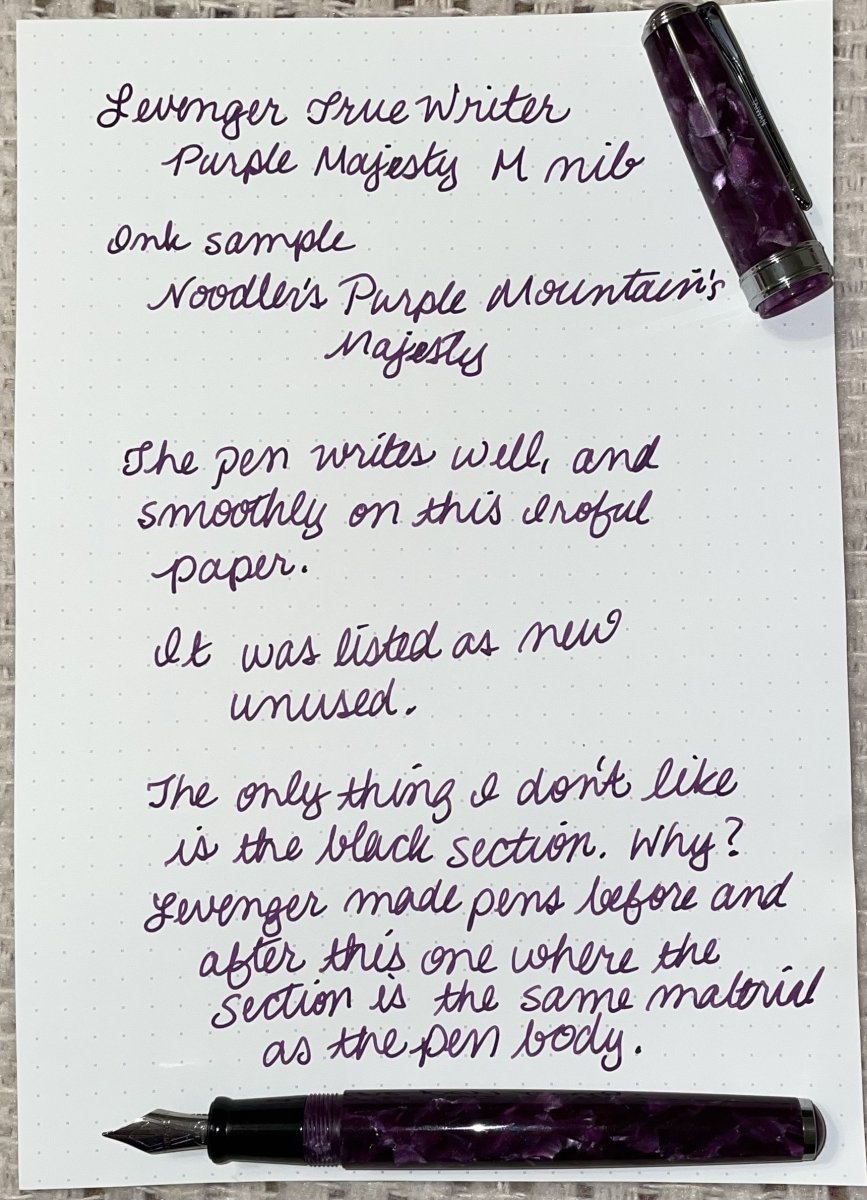 Levenger True Writer
Purple Majesty M nib
Ink sample
Noodler's Purple Mountain's
Majesty
The pen writes well, and
smoothly on this Iroful
paper.
It was listed as new
unused.
The only thing I don't like
is the black section. Why?
Levenger made pens before and
after this one where the
section is the same material
as the pen body.
TAIWAN